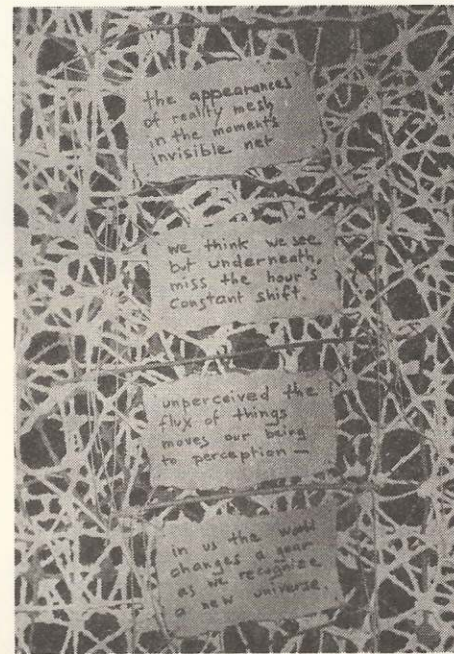 the appearances
of reality mesh
in the moment's
invisible net
we think we see
but underneath,
miss the hour's
constant shift.
unperceived the
flux of things
moves our being
to perception —
in us the world
changes a year
as we recognize
a new universe.